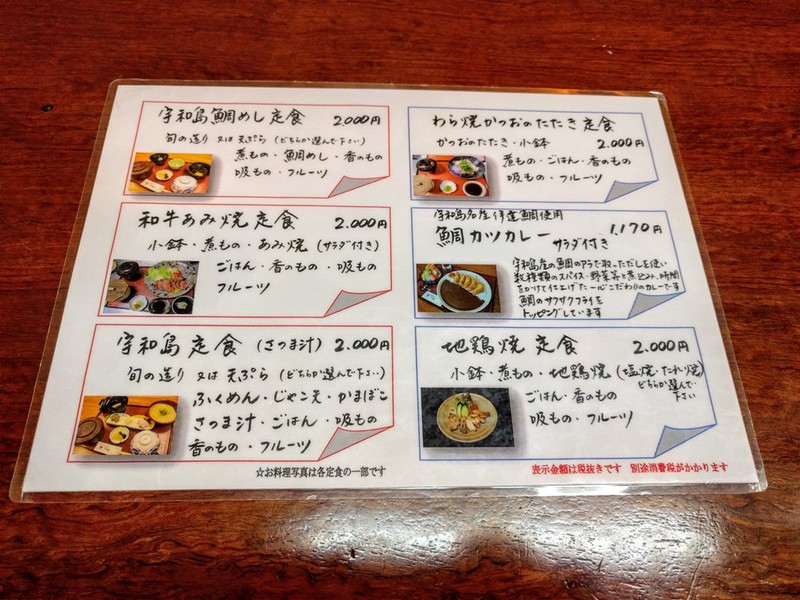 宇和島鯛めし定食 2.000円
旬の造り 又は 天ぷら (どちらか選んで下さい)
煮もの・鯛めし・香のもの
吸もの・フルーツ
和牛あみ焼定食 2.000円
小鉢・煮もの・あみ焼 (サラダ付き)
ごはん・香のもの・吸もの
フルーツ
宇和島定食 (さつま汁) 2.000円
旬の造り 又は 天ぷら (どちらか選んで下さい)
ふくめん・じゃこ天・かまぼこ
さつま汁・ごはん・吸もの
香のもの・フルーツ
☆お料理写真は各定食の一部です
わら焼かつおのたたき定食
かつおのたたき・小鉢 2.000円
煮もの・ごはん・香のもの
吸もの・フルーツ
宇和島名産 伊達鯛使用
鯛カツカレー サラダ付き 1.170円
宇和島産の鯛のアラで取っただしを使い
数種類のスパイス・野菜等と煮込み、時間
をかけて仕上げた一心こだわりのカレーです
鯛のサクサクフライを
トッピングしています
地鶏焼定食 2.000円
小鉢・煮もの・地鶏焼 (塩焼・たれ焼)
どちらか選んで
下さい
ごはん・香のもの
吸もの・フルーツ
表示金額は税抜きです 別途消費税がかかります